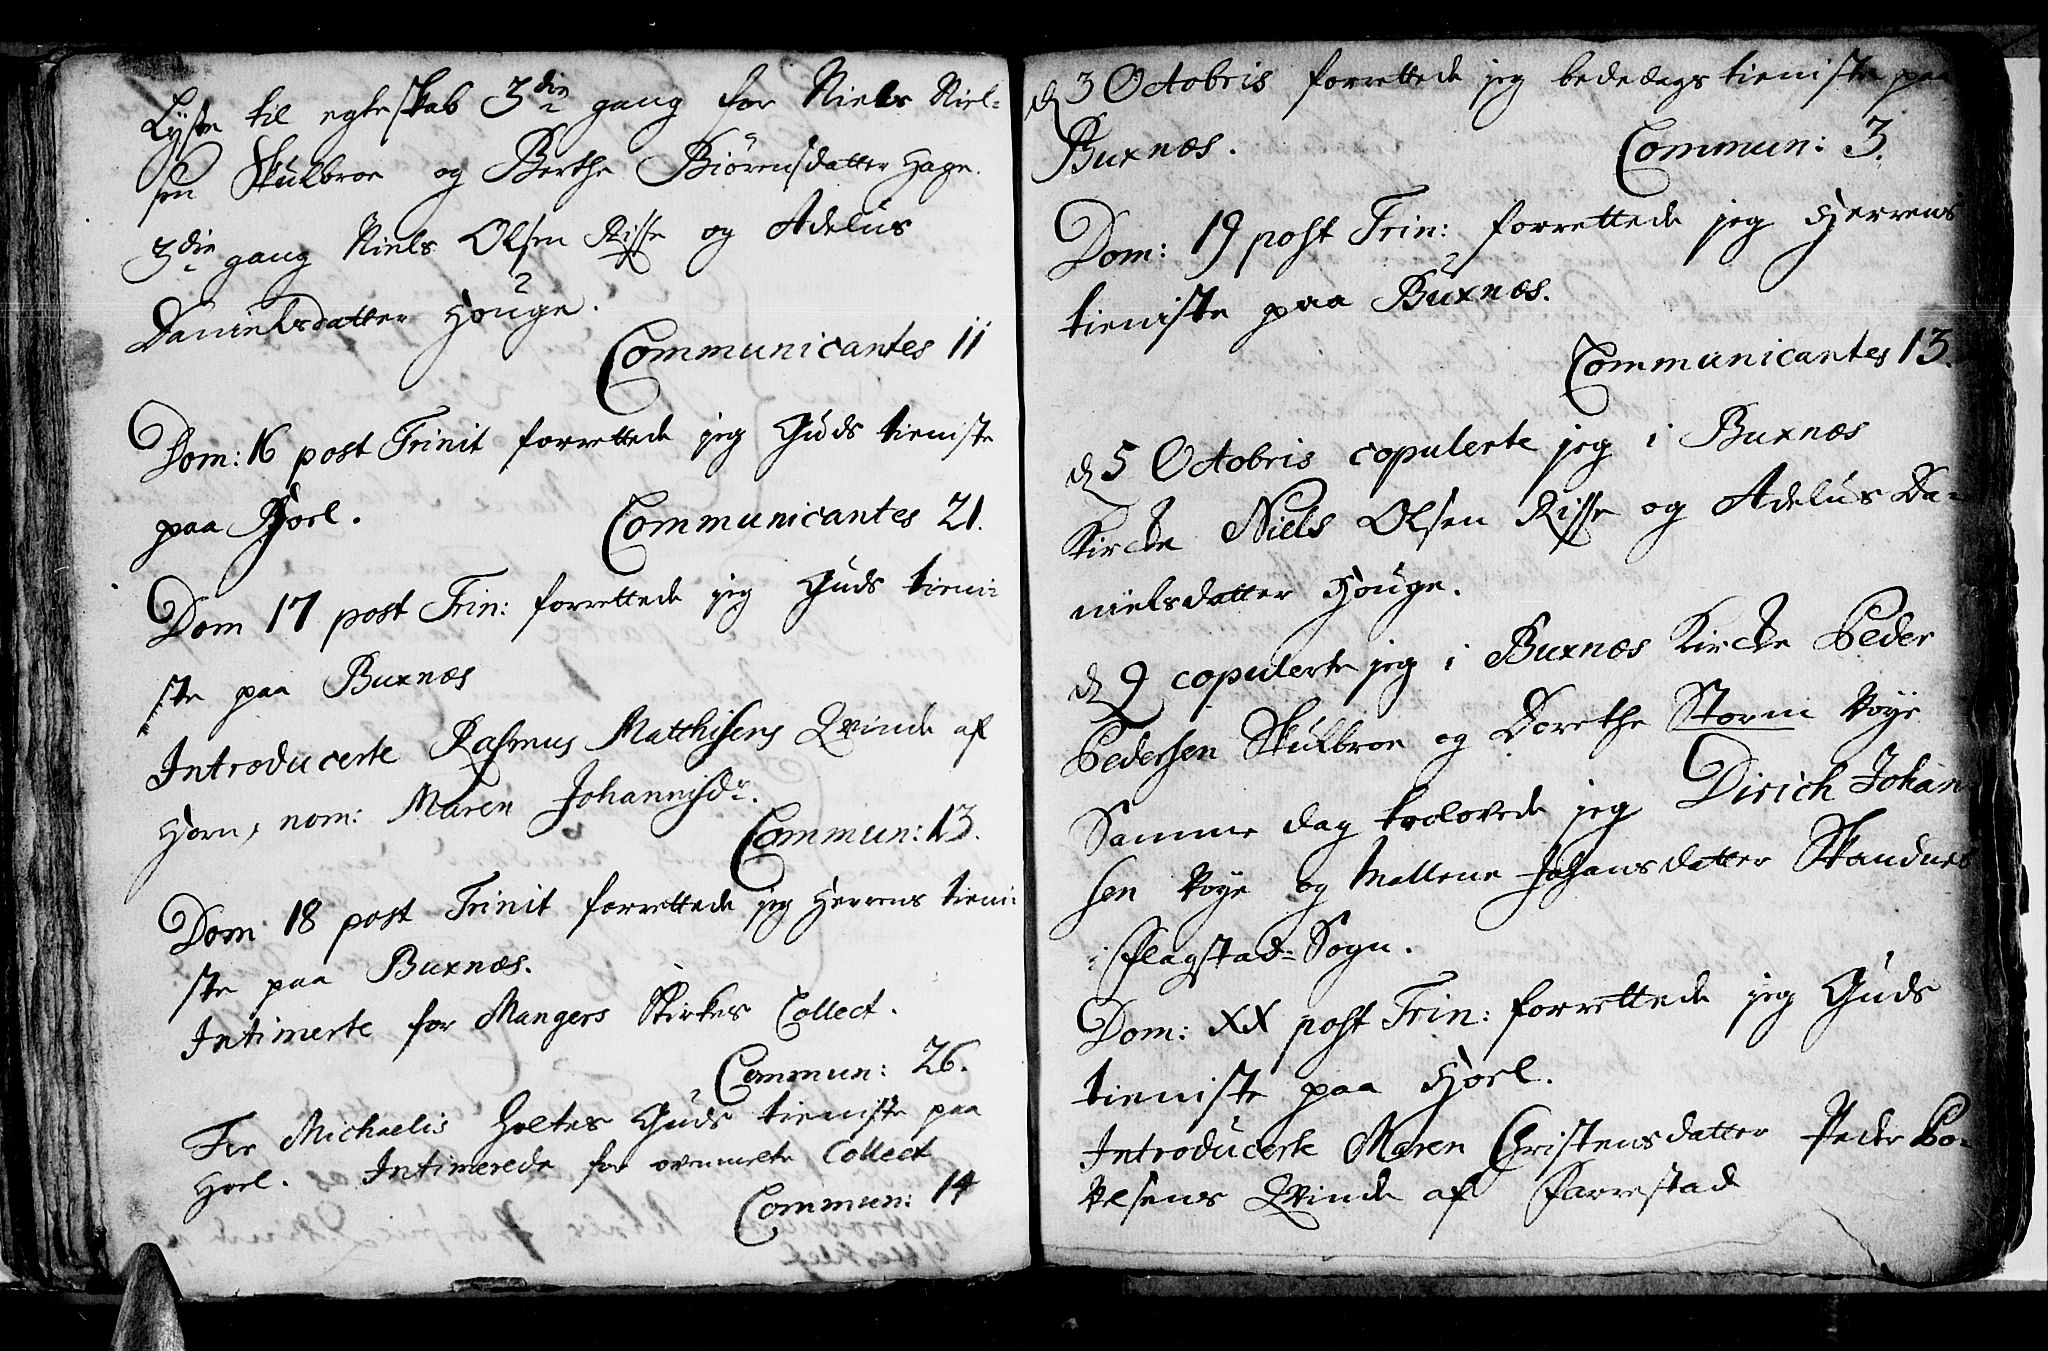 Lyste til egteskab 3die gang for Niels Niel-
sen Skulbroe og Berthe Biørensdatter Hage.
3die gang Niels Olsen Risse og Adelus
Danielsdatter Houge.
Communicantes 11
Dom: 16 post Trinit forrettede jeg Guds tieniste
paa Hoel.
Communicantes 21.
Dom 17 post Trin: forrettede jeg Guds tieni-
ste paa Buxnæs
Introducerte Rasmus Matthisens Qvinde af
Horn, nom: Maren Johannisdr.
Commun: 13.
Dom 18 post Trinit forrettede jeg Herrens tieni-
ste paa Buxnæs.
Intimerte for Mangers Kirkes Collect.
Commun: 26.
Fer Michaelis holtes Guds tieniste paa
Hoel. Intimerede for ovenmelte Collect
Commun: 14
d 3 Octobris forrettede jeg bededags tieniste paa
Buxnæs. Commun: 3.
Dom: 19 post Trin: forrettede jeg Herrens
tieniste paa Buxnæs.
Communicantes 13.
d 5 Octobris copulerte jeg i Buxnæs
Kircke Niels Olsen Risse og Adelus Da-
nielsdatter Houge.
d 9 copulerte jeg i Buxnæs Kircke Peder
Pedersen Skulbroe og Dorethe Storm Vøye
Samme dag trolovede jeg Dirich Johan
sen Vøye og Mallene Johansdatter Skandnes
i Flagstad-Sogn.
Dom: XX post Trin: forrettede jeg Guds
tieniste paa Hoel.
Introducerte Maren Christensdatter Peder Po-
velsens Qvinde af Farrestad